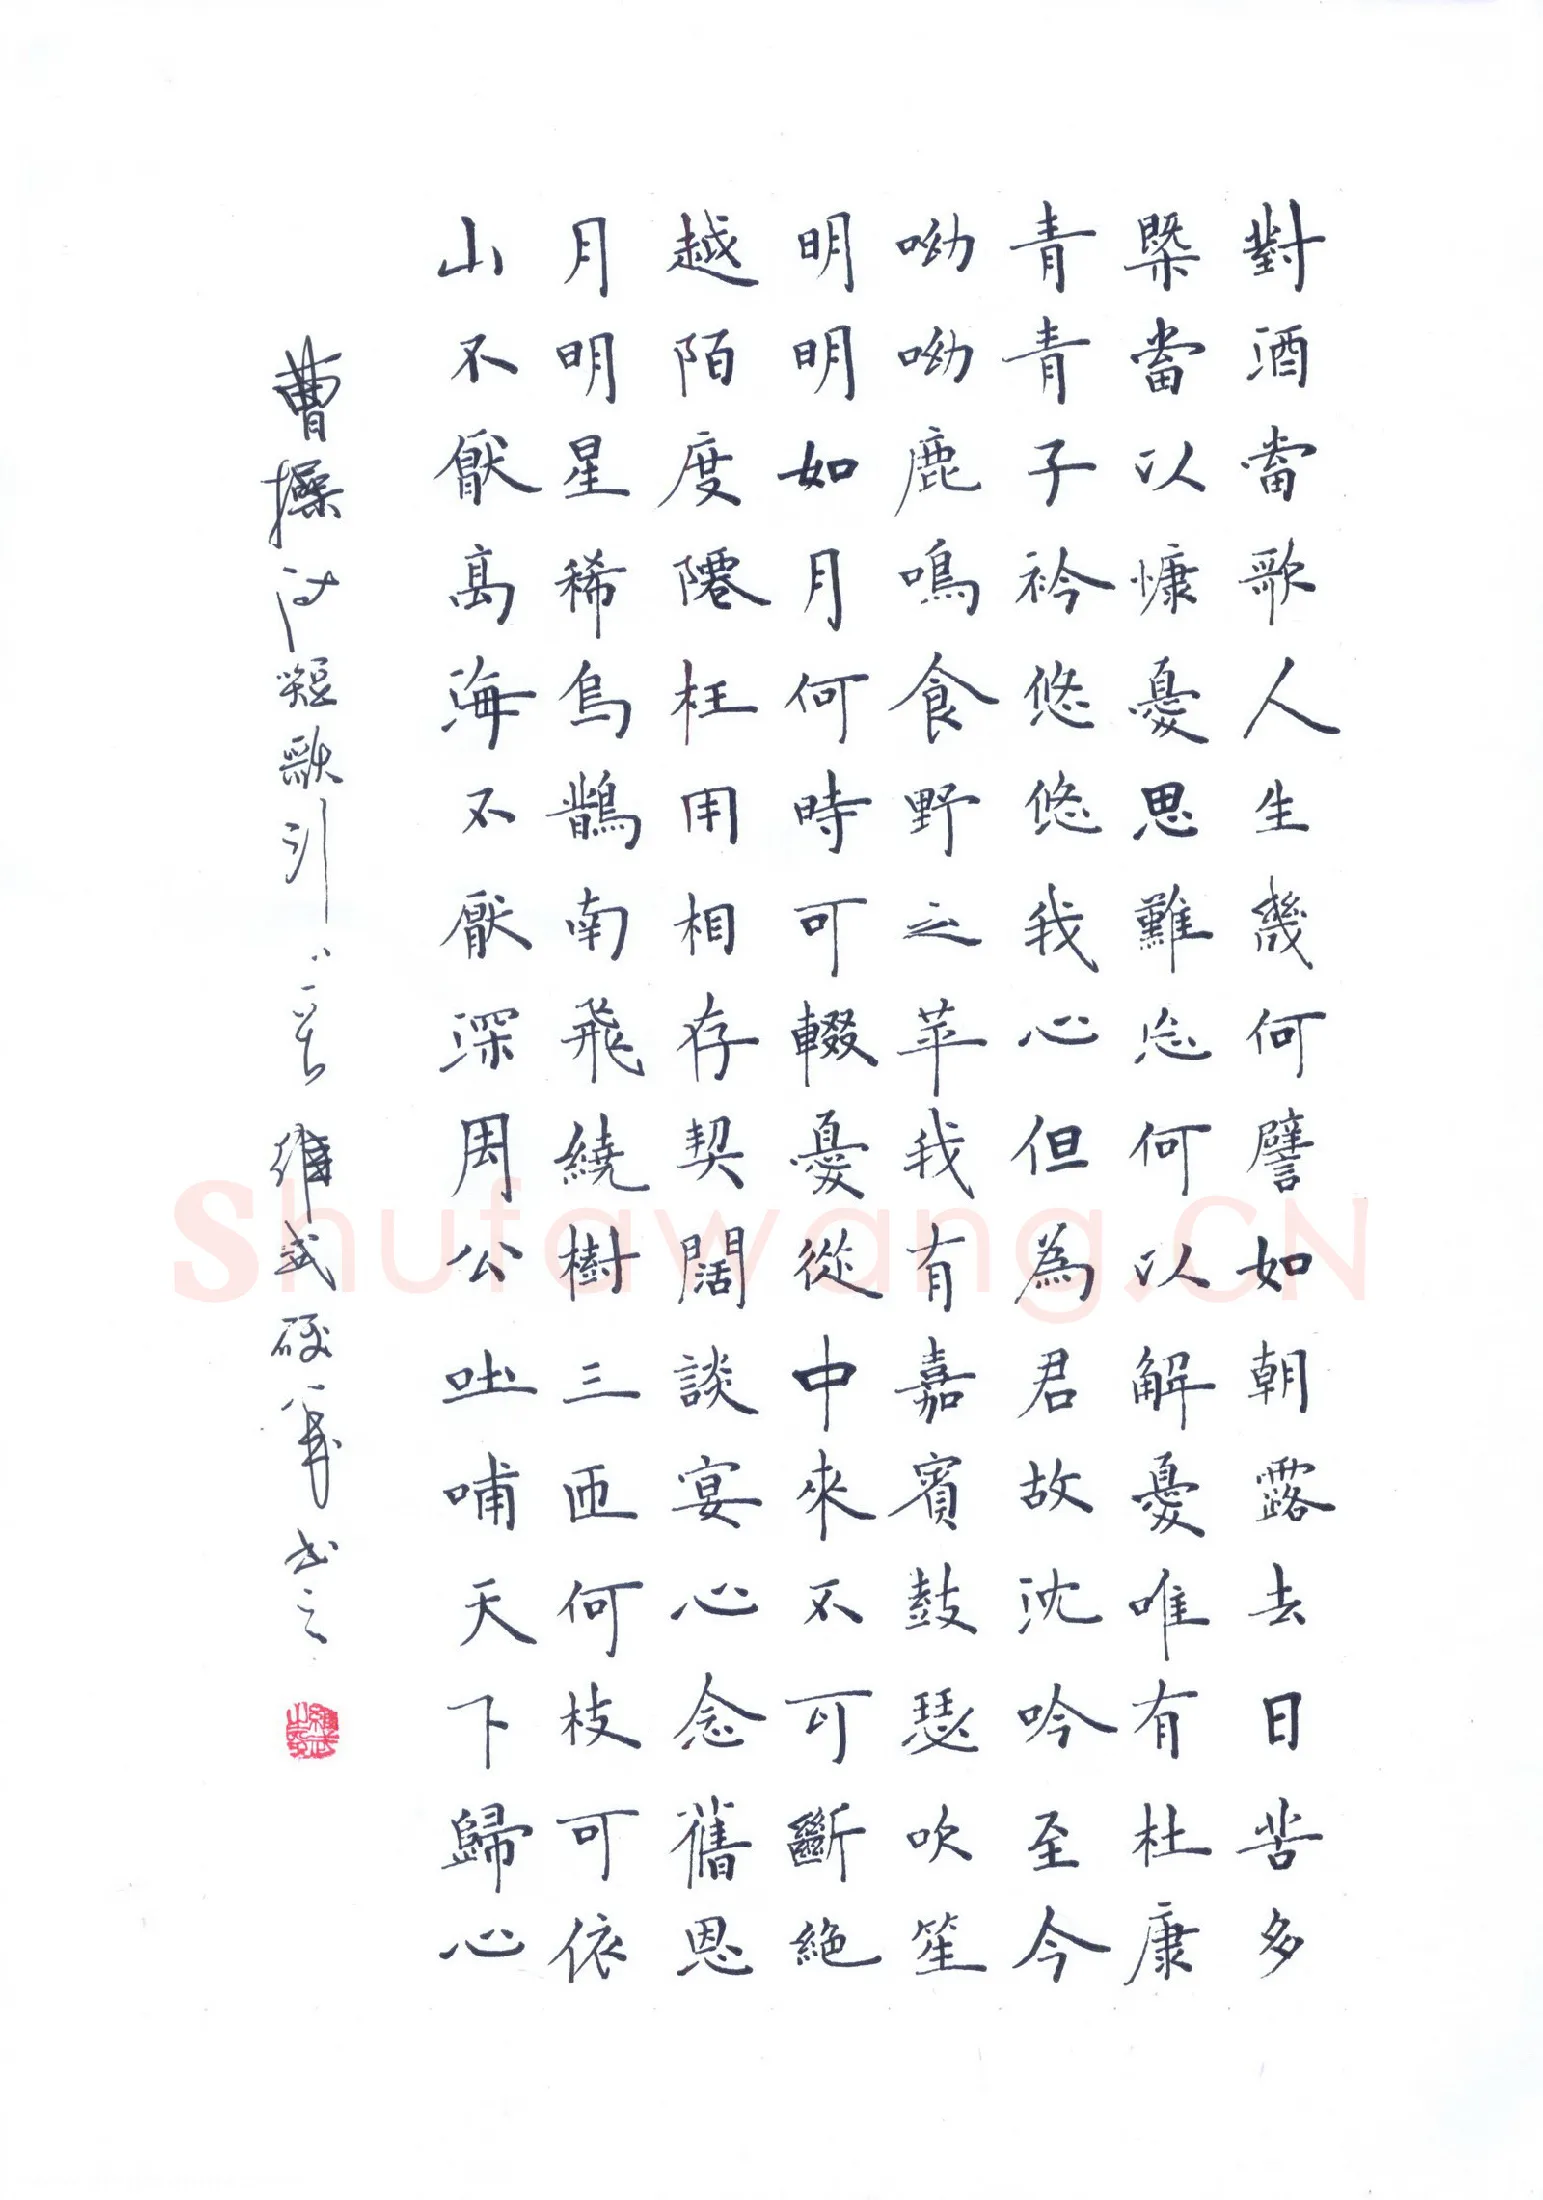 對酒當歌人生幾何譬如朝露去日苦多
槩當以慷憂思難忘何以解憂唯有杜康
青青子衿悠悠我心但為君故沈吟至今
呦呦鹿鳴食野之苹我有嘉賓鼓瑟吹笙
明明如月何時可輟憂從中來不可斷絕
越陌度阡枉用相存契闊談宴心念舊恩
月明星稀烏鵲南飛繞樹三匝何枝可依
山不厭高海不厭深周公吐哺天下歸心
曹操詩短歌引一首 維武硬筆書之
Shufawang.CN